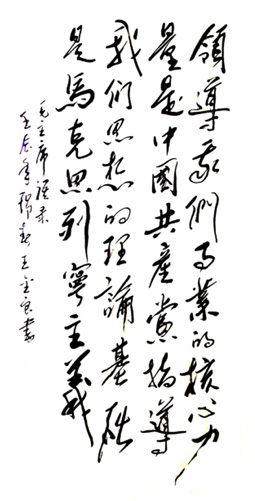 領導我們事業的核心力
量是中國共產黨指導
我們思想的理論基礎
是馬克思列寧主義
毛主席語录
年 春 王 書